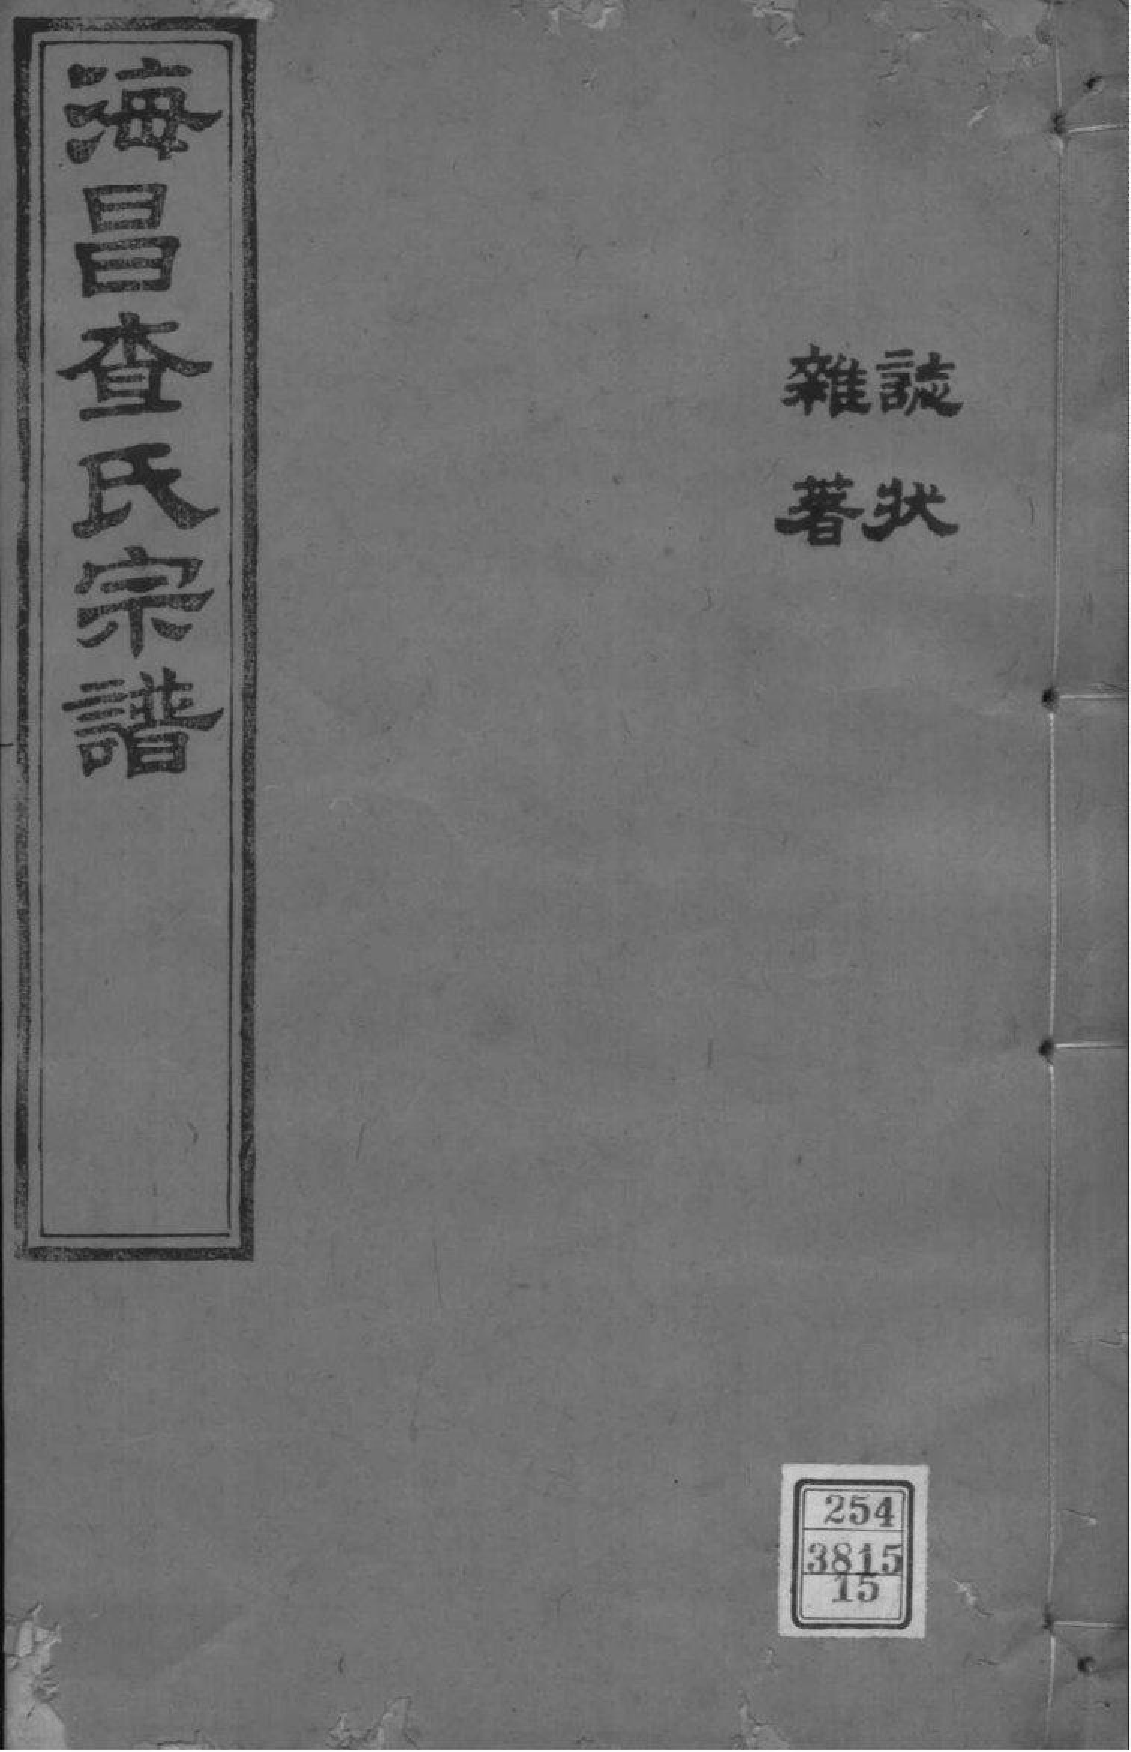 誌狀
雜著
海昌查氏宗譜
254
3815
15